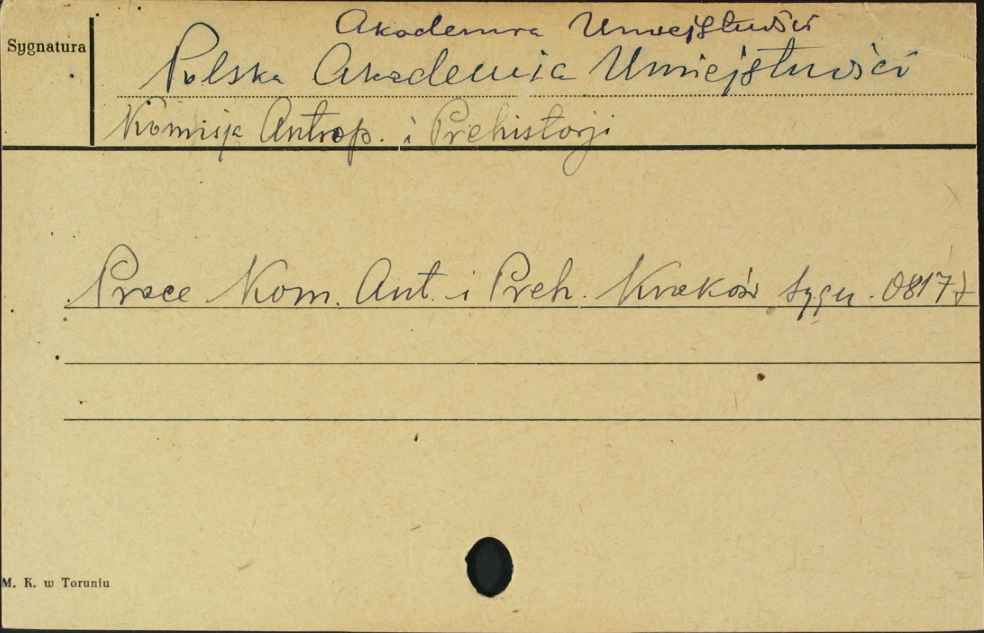 Akademia Umiejętności
Sygnatura
Polska Akademia Umiejętności
Komisja Antrop. i Prehistorji
Prace Kom. Ant. i Preh. Kraków sygn. 08177
M. K. w Toruniu